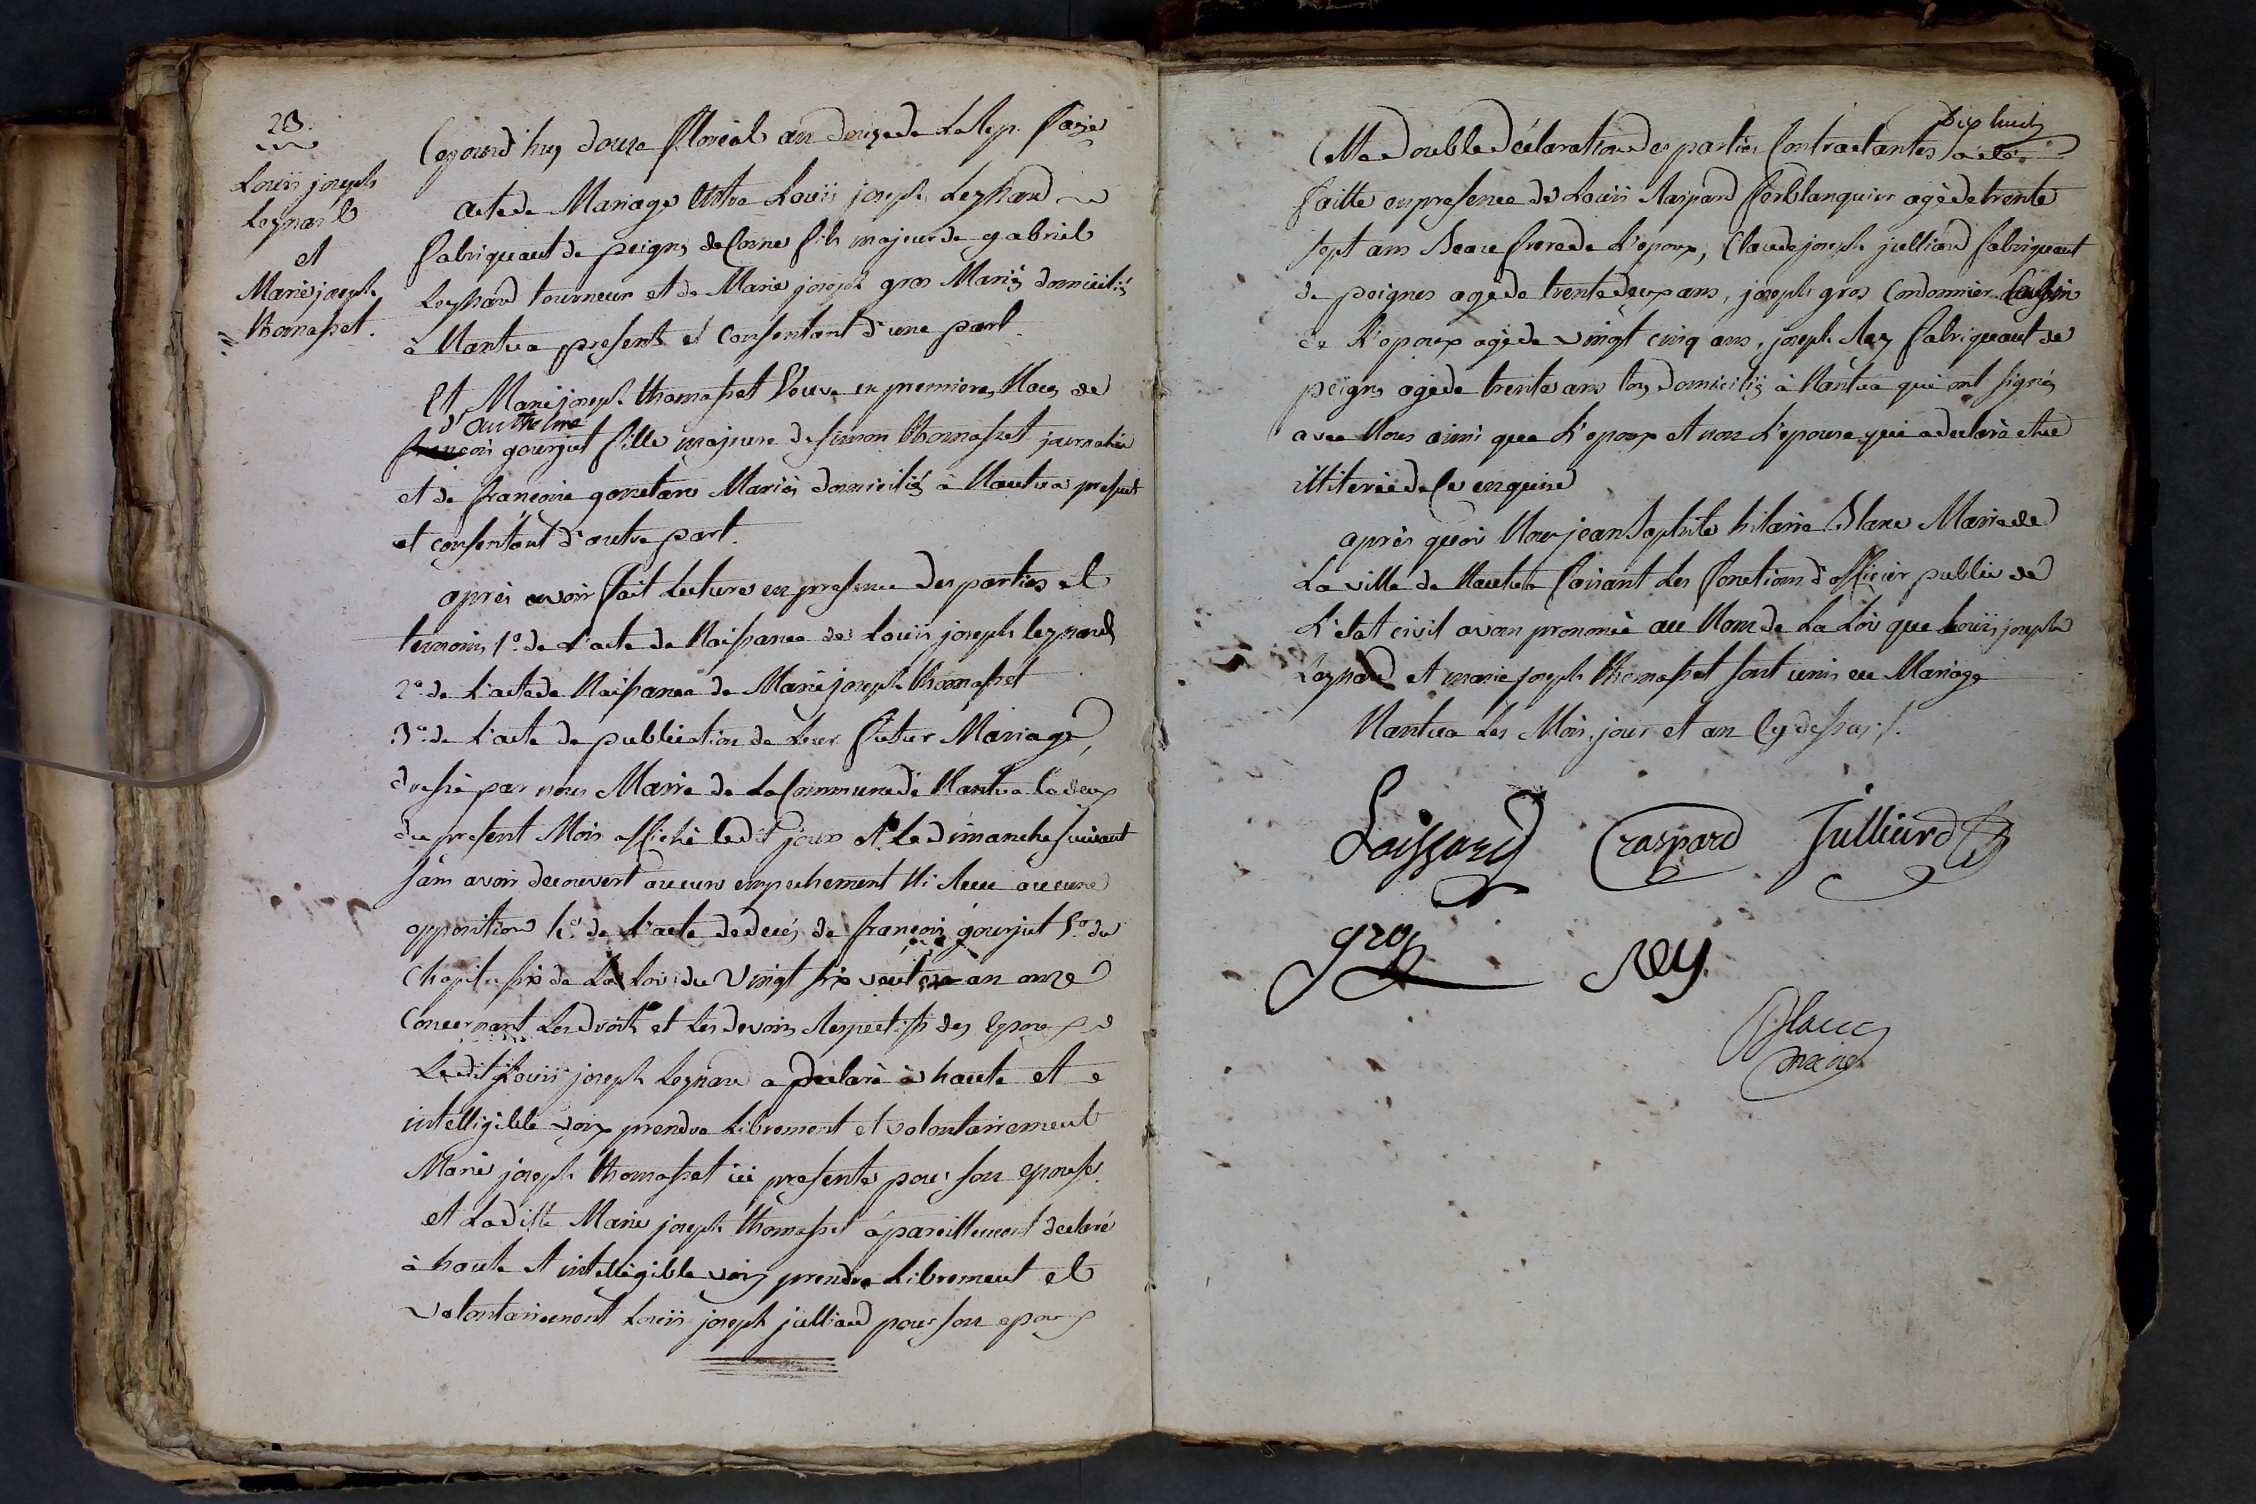 23.
Louis joseph
Leynard
et
Marie joseph
thomasset.
Cejourd'huy douze floréal an douze de La Rep. fançe
acte de Mariage Entre Louis joseph Leynard
fabriquant de peigns de Corne fils majeur de gabriel
Leynard tourneur et de Marie joseph gros Mariés domiciliés
à Nantua present et Consentant d'une part.
Et Marie joseph thomasset Veuve en premieres Noces de
d'anthelme
françois gourjut fille majeure de simon thomasset journalier
et de françoise gonetan Mariés domiciliés à Nantua present
et consentant d'autre part.
après avoir fait Lecture en presence des parties et
temoins 1º. de L'acte de Naissance de Louis joseph leynard
2º. de L'acte de Naissance de Marie joseph thomasset
3º. de L'acte de publication de Leur futur Mariage,
dressé par nous Maire de La Commune de Nantua le deux
du present Mois affiché ledit jour et Le dimanche suivant
sans avoir decouvert aucuns empechement Ni Reçu aucune
opposition 4º. de L'acte de decés de françois gourjut 5º. du
Chapitre six de La Loi du Vingt six ventose an onze
Concernant Les droits et Les devoirs Respectifs des Epoux
Ledit Louis joseph Leynard a declaré à haute et
intelligible voix prendre Librement et volontairement
Marie joseph thomasset ici presente pour son epouse.
et Laditte Marie joseph thomasset à pareillement declaré
à haute et intelligible voix prendre Librement et
volontairement Louis joseph julliard pour son epoux
Dix huit
Cette double déclaration des parties Contractantes a été
faitte en presence de Louis Raspard ferblanquier agé de trente
sept ans Beau frere de L'epoux, Claude joseph julliard fabriquant
de peignes agé de trente deux ans, joseph gros Cordonnier Cousin
de L'epoux agé de vingt cinq ans, joseph Rey fabriquant de
peigns agé de trente ans tous domiciliés à Nantua qui ont signés
avec Nous ainsi que L'epoux et non L'epouse qui a declaré etre
illiterée de Ce enquise
après quoi Nous jean Baptiste hilaire Blanc Maire de
La ville de Nantua faisant Les fonctions d'officier public de
L'etat civil avons prononcé au Nom de La Loi que Louis joseph
Leynard et marie joseph thomasset sont unis en Mariage
Nantua Les Mois, jour et an Cy dessus /.
Raspard Julliard
gros Rey
Blanc
maire